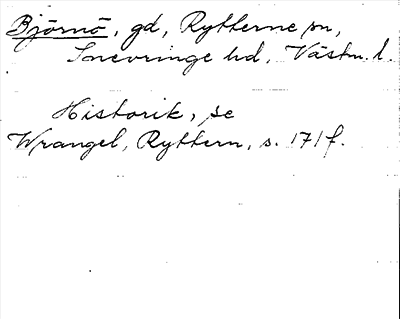 Björnö, gd, Rytterne sn,
Snevringe hd, Västm. l.
Historik, se
Wrangel, Ryttern, s. 171 f.